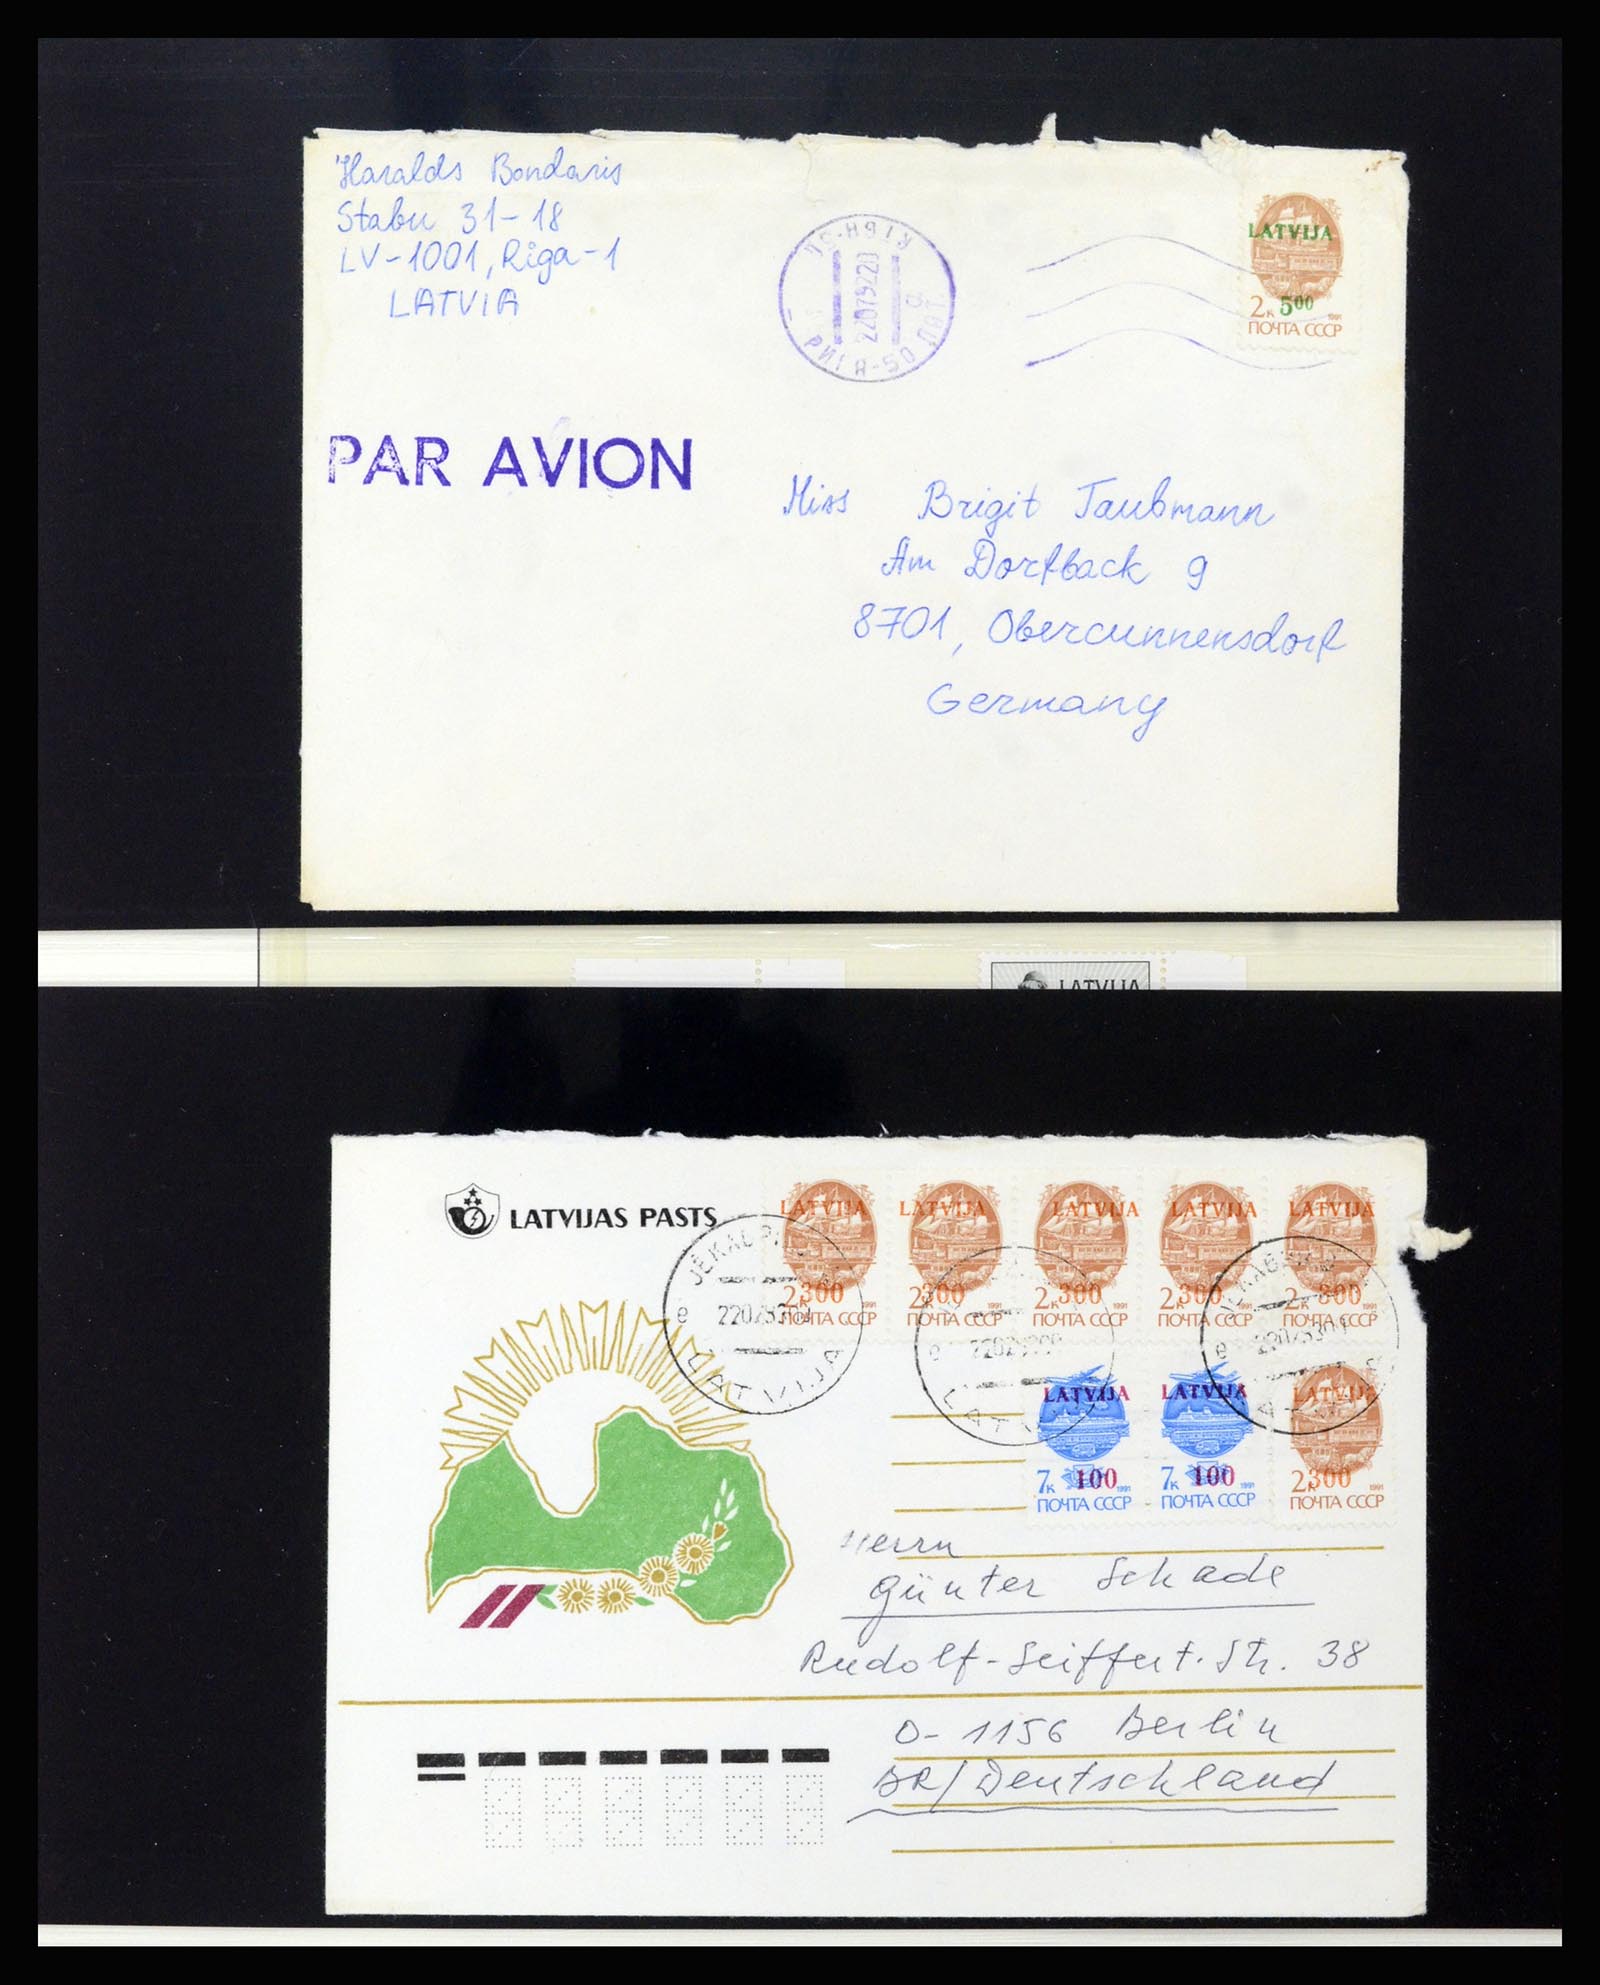 Haralds Bondaris
Stabu 31-18
LV-1001, Riga-1
LATVIA
РИГА-50
22079220
LATVIJA
2к 500 1991
ПОЧТА СССР
PAR AVION
Miss Brigit Taubmann
Am Dorfback 9
8701, Obercunnensdorf
Germany
LATVIJA
LATVIJAS PASTS
LATVIJA LATVIJA LATVIJA LATVIJA LATVIJA
2к 300 2к 300 1991 2к 300 1991 2к 300 1991 2к 300
ПОЧТА СССР ПОЧТА СССР ПОЧТА СССР ПОЧТА СССР ПОЧТА СССР
JĒKABPILS
e
LATVIJA
e
LATVIJA
e
LATVIJA LATVIJA LATVIJA
7к 100 1991 7к 100 1991 2к 300 1991
ПОЧТА СССР ПОЧТА СССР ПОЧТА СССР
Herrn
Günter Schade
Rudolf-Seiffert-Str. 38
O-1156 Berlin
BR/Deutschland